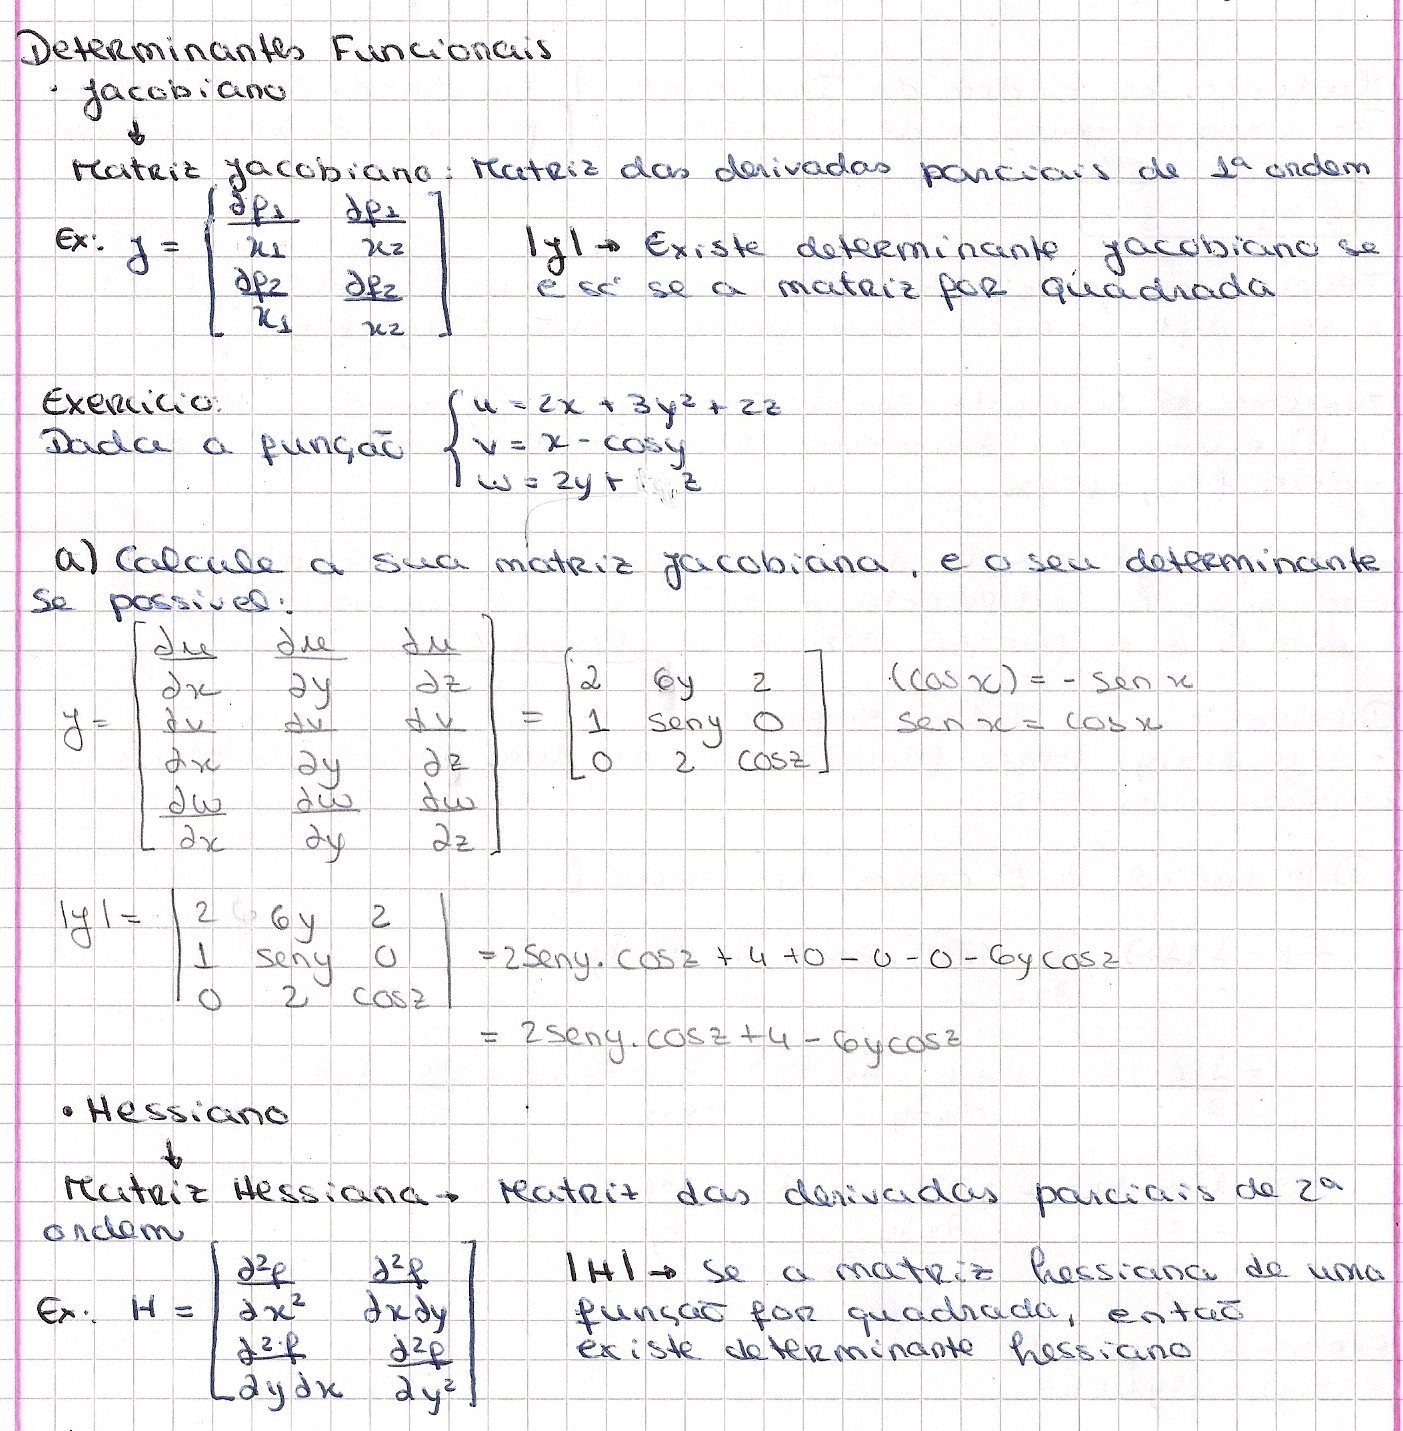 Determinantes Funcionais
· Jacobiano
↓
Matriz Jacobiano: Matriz das derivadas parciais de 1ª ordem
Ex: J = [ ∂f1/x1 ∂f1/x2
∂f2/x1 ∂f2/x2 ]
|J| → Existe determinante jacobiano se
e só se a matriz for quadrada
Exercício:
Dada a função { u = 2x + 3y² + 2z
v = x - cosy
w = 2y + z
a) Calcule a sua matriz jacobiana, e o seu determinante
se possível:
J = [ ∂u/∂x ∂u/∂y ∂u/∂z
∂v/∂x ∂v/∂y ∂v/∂z
∂w/∂x ∂w/∂y ∂w/∂z ]
= [ 2 6y 2
1 seny 0
0 2 cosz ]
(cos x) = - sen x
sen x = cos x
|J| = | 2 6y 2
1 seny 0
0 2 cosz |
= 2seny. cosz + 4 + 0 - 0 - 0 - 6y cosz
= 2seny. cosz + 4 - 6y cosz
• Hessiano
↓
Matriz Hessiana → Matriz das derivadas parciais de 2ª
ordem
Ex: H = [ ∂²f/∂x² ∂²f/∂x∂y
∂²f/∂y∂x ∂²f/∂y² ]
|H| → se a matriz hessiana de uma
função for quadrada, então
existe determinante hessiano